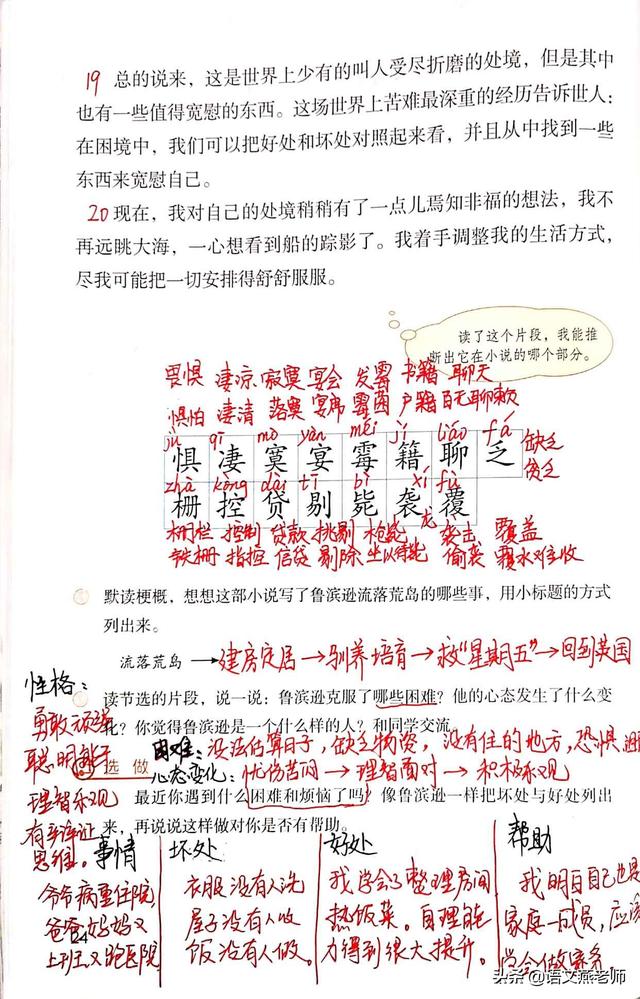 19 总的说来，这是世界上少有的叫人受尽折磨的处境，但是其中
也有一些值得宽慰的东西。这场世界上苦难最深重的经历告诉世人：
在困境中，我们可以把好处和坏处对照起来看，并且从中找到一些
东西来宽慰自己。
20 现在，我对自己的处境稍稍有了一点儿焉知非福的想法，我不
再远眺大海，一心想看到船的踪影了。我着手调整我的生活方式，
尽我可能把一切安排得舒舒服服。
读了这个片段，我能推
断出它在小说的哪个部分。
畏惧 凄凉 寂寞 宴会 发霉 书籍 聊天
惧怕 凄清 落寞 宴席 霉菌 户籍 百无聊赖
jù qī mò yàn méi jí liáo fá
惧 凄 寞 宴 霉 籍 聊 乏 缺乏
贫乏
zhà kòng dài tī bì xí fù
栅 控 贷 剔 毙 袭 覆
栅栏 控制 贷款 挑剔 枪毙 龙 袭击 覆盖
铁栅 指控 信贷 剔除 坐以待毙 偷袭 覆水难收
默读梗概，想想这部小说写了鲁滨逊流落荒岛的哪些事，用小标题的方式
列出来。
流落荒岛 → 建房定居 → 驯养培育 → 救“星期五” → 回到英国
读节选的片段，说一说：鲁滨逊克服了哪些困难？他的心态发生了什么变
化？你觉得鲁滨逊是一个什么样的人？和同学交流。
性格：
勇敢顽强
聪明能干
理智乐观
有辩证
思维。
困难：没法估算日子，缺乏物资，没有住的地方，恐惧
选做
心态变化：忧伤苦闷 → 理智面对 → 积极乐观
最近你遇到什么困难和烦恼了吗？像鲁滨逊一样把坏处与好处列出
来，再说说这样做对你是否有帮助。
事情 坏处 好处 帮助
爷爷病重住院
爸爸妈妈又
上班又跑医院
衣服没有人洗
屋子没有人收
饭没有人做。
我学会了整理房间
热饭菜。自理能
力得到很大提升。
我明白自己也是
家庭一成员，应该
学会做家务
24
头条 @语文燕老师